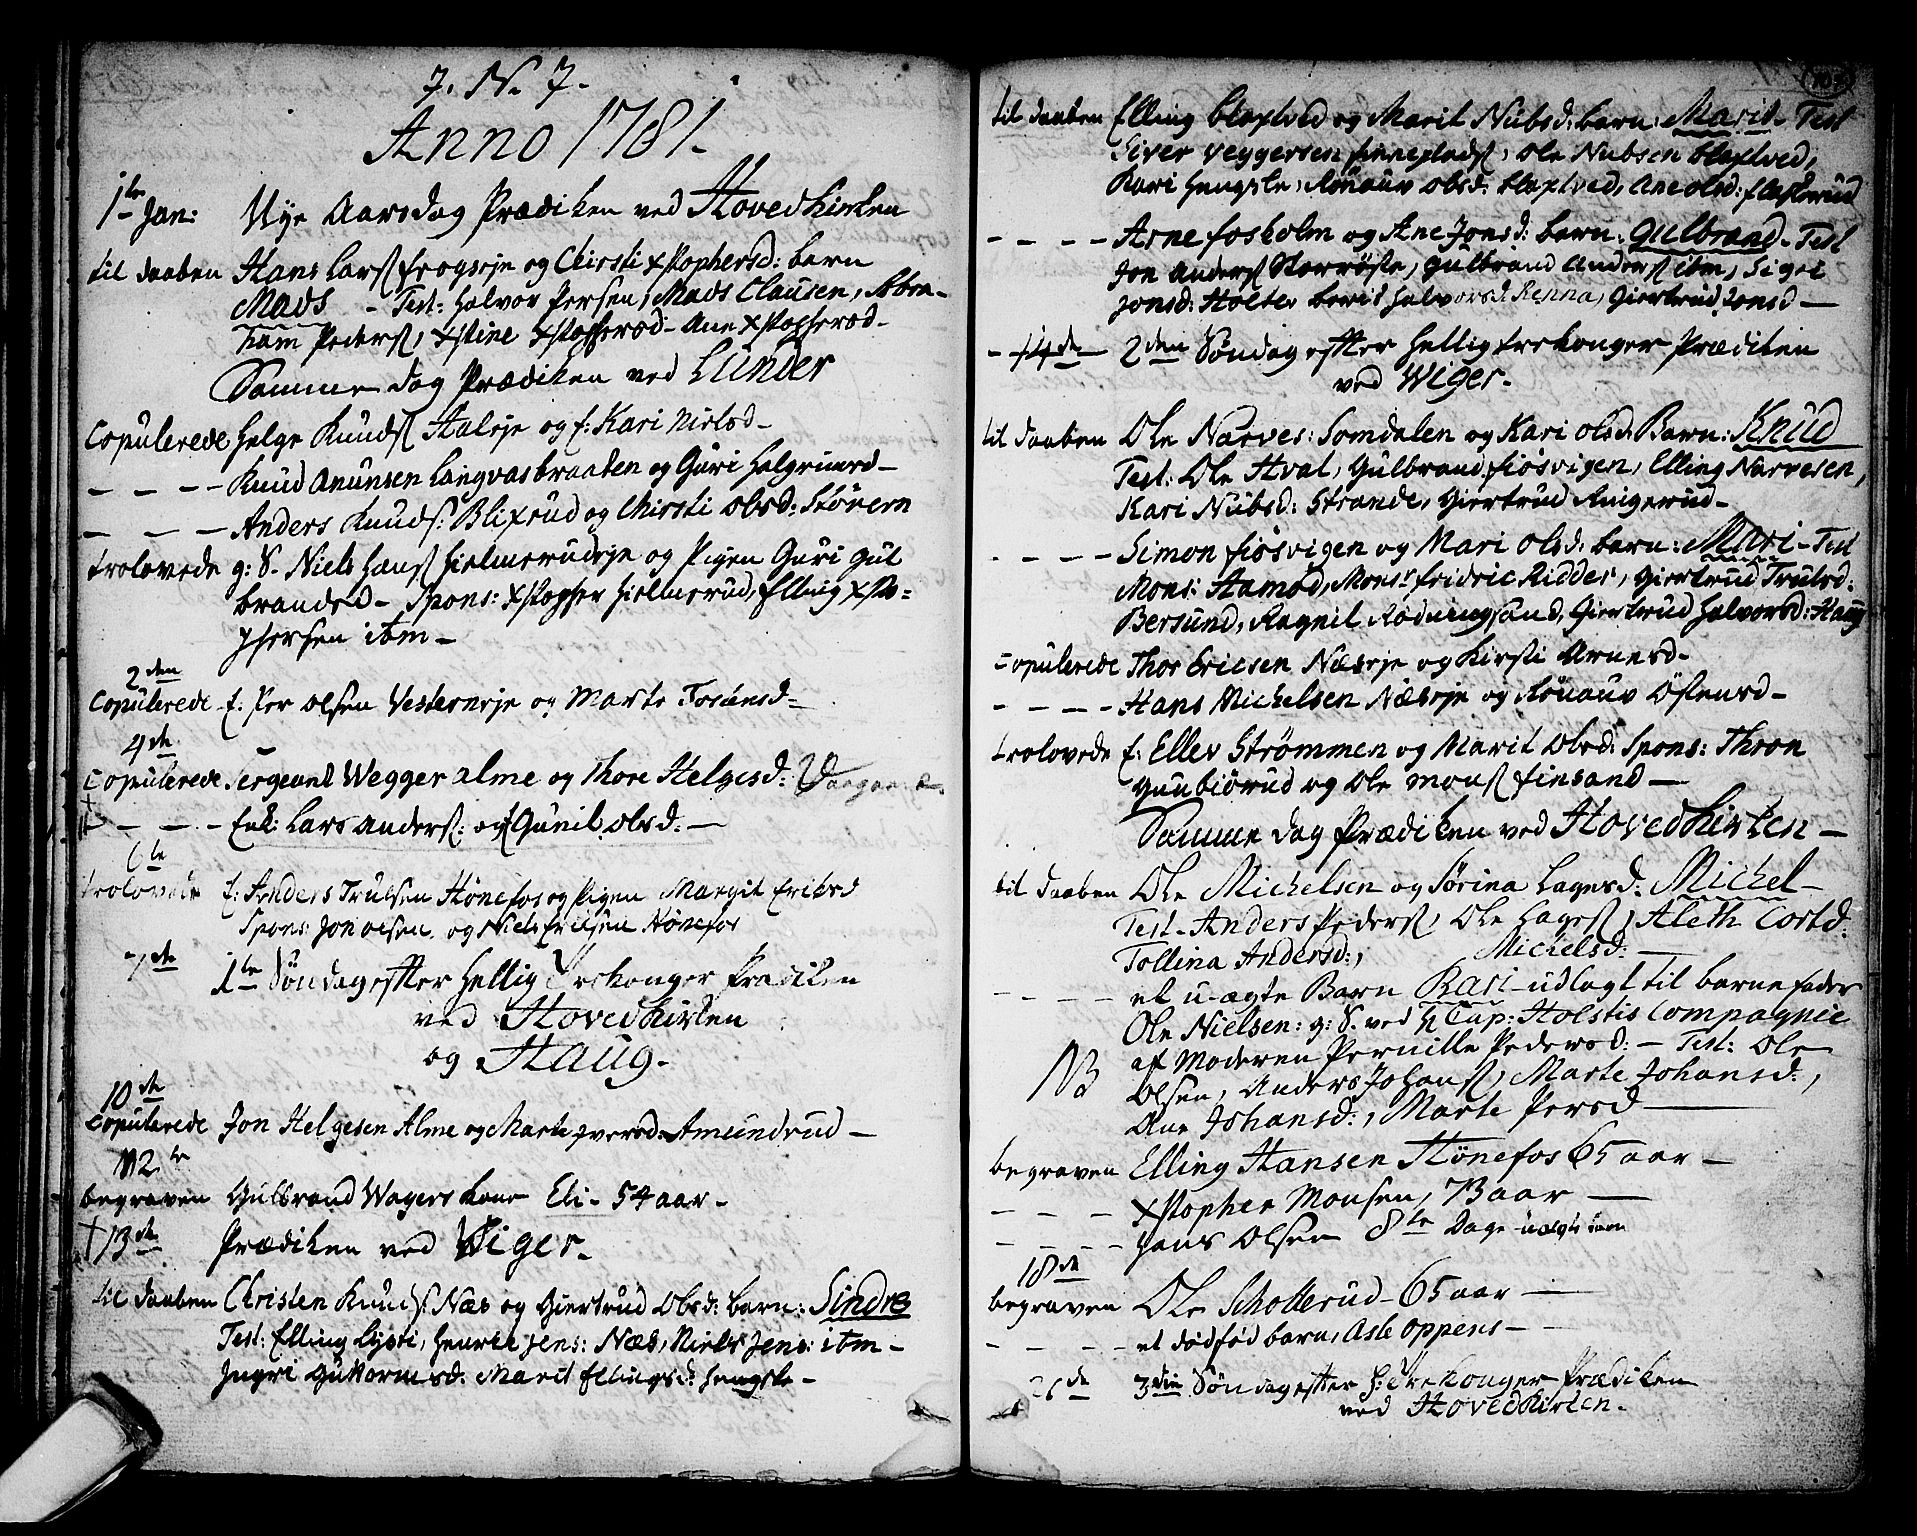 J. N. J.
Anno 1781.
1te Jan: Nye Aarsdag Prædiken ved Hovedkirken
til daaben Hans Lars: Frogeje og Chirsti Xstophersd: barn
Mads - Test: Halvor Persen, Mads Clausen, Abra-
ham Peders:, Xstine Xstophersd- Ane Xstophersd-
Samme dag Prædiken ved Lunder
Copulerede Helge Knuds: Haleje og f: Kari Nielsd-
- - - - Knud Anunsen Langvasbraaten og Guri Halgrimsd-
- - - Anders Knuds: Blixrud og Chirsti Olsd: Støvern
trolovede g: S. Niels Hans: Hielmerudeje og Pigen Guri Gul
brandsd- Spons: Xstopher Hielmerud, Elling Xsto-
phersen ibm-
2den
Copulerede f: Per Olsen Vesterneje og Marte Tostensd-
4de
Copulerede Sergeant Wegger Alme og Thore Helgesd:
- - - Enk: Lars Anders: og Gunil Olsd: -
6te
trolovede f: Anders Trulsen Hønefos og Pigen Margit Eriksd
Spons: Jon Olsen og Niels Erichsen Hønefos
7de 1te Søndag efter Hellig Trekonger Prædiken
ved Hovedkirken
og Haug.
10de
Copulerede Jon Helgesen Alme og Marte Iversd: Amundrud -
12te
begraven Gulbrand Wagers kone Eli - 54 aar -
13de Prædiken ved Wiger.
til daaben Christen Knuds: Næs og Giertrud Olsd: barn: Sindre
Test: Elling Lysti, Henrik Jens: Næs, Niels Jens: ibm -
Ingri Guttormsd: Marit Ellingsd: Hengsle -
til daaben Elling Claxtved og Marit Nubsd: barn: Marit - Test
Siver Veggersen Finneplads, Ole Nubsen Claxtved,
Kari Hengsle, Rønauv Olsd: Claxtved, Ane Olsd: Flaskerud
- - - - Arne Foskolm og Ane Jonsd: barn: Gulbrand - Test
Jon Anders: Storrøste, Gulbrand Anders: ibm, Sigri
Jonsd: Holter Berit Halvorsd: Renna, Giertrud Jonsd -
- 14de - 2den Søndag efter Hellig trekonger Prædiken
ved Wiger.
til daaben Ole Narves: Somdalen og Kari Olsd: Barn: Knud
Test: Ole Hval, Gulbrand Fiøsvigen, Elling Narvesen,
Kari Nubsd: Strande, Giertrud Ringerud -
- - - - Simon Fiøsvigen og Mari Olsd: barn: Mari - Test
Mons: Aamod, Monsr Fridric Ridder, Giertrud Trulsd:
Bersund, Ragnil Rødningsand, Giertrud Halvorsd: Haug
Copulerede Thor Ericsen Næseje og Kirsti Arnesd -
- - - - Hans Michelsen Næseje og Rønauv Østensd -
trolovede f: Ellev Strømmen og Marit Olsd: Spons: Thron
Gunbiørud og Ole Mons: Finsand -
Samme dag Prædiken ved Hovedkirken -
til daaben Ole Michelsen og Sørina Lagesd: Michel -
Test - Anders Peders:, Ole Lages:, Aleth Cortsd:
Tollina Andersd:, Michelsd: -
- - - - et u-ægte Barn Kari - udlagt til barnefader
Ole Nielsen: g: S. ved H Cap: Holstis Compagnie
NB af Moderen Pernille Pedersd: - Test: Ole
Olsen, Anders Johans:, Marte Johansd:,
Ane Johansd:, Marte Persd -
begraven Elling Hansen Hønefos 65 aar -
- - - Xstopher Monsen, 73 aar -
- - - - Hans Olsen 8te Dage uægte
18de
begraven Ole Schollerud - 65 aar -
- - - - et dødfød barn, Asle Oppens -
21de 3die Søndag efter H: Trekonger Prædiken
ved Hovedkirken.